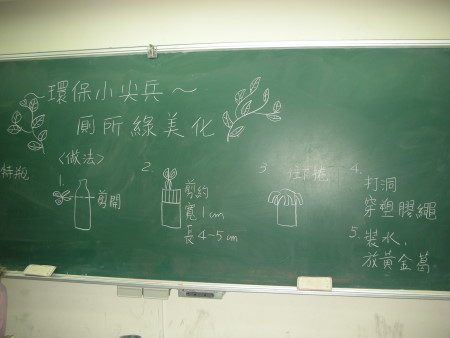 ～環保小尖兵～
廁所綠美化
<做法>
特瓶
1.
剪開
2.
剪約
寬1cm
長4-5cm
3.
4.
打洞
穿塑膠繩
5.裝水,
放黃金葛